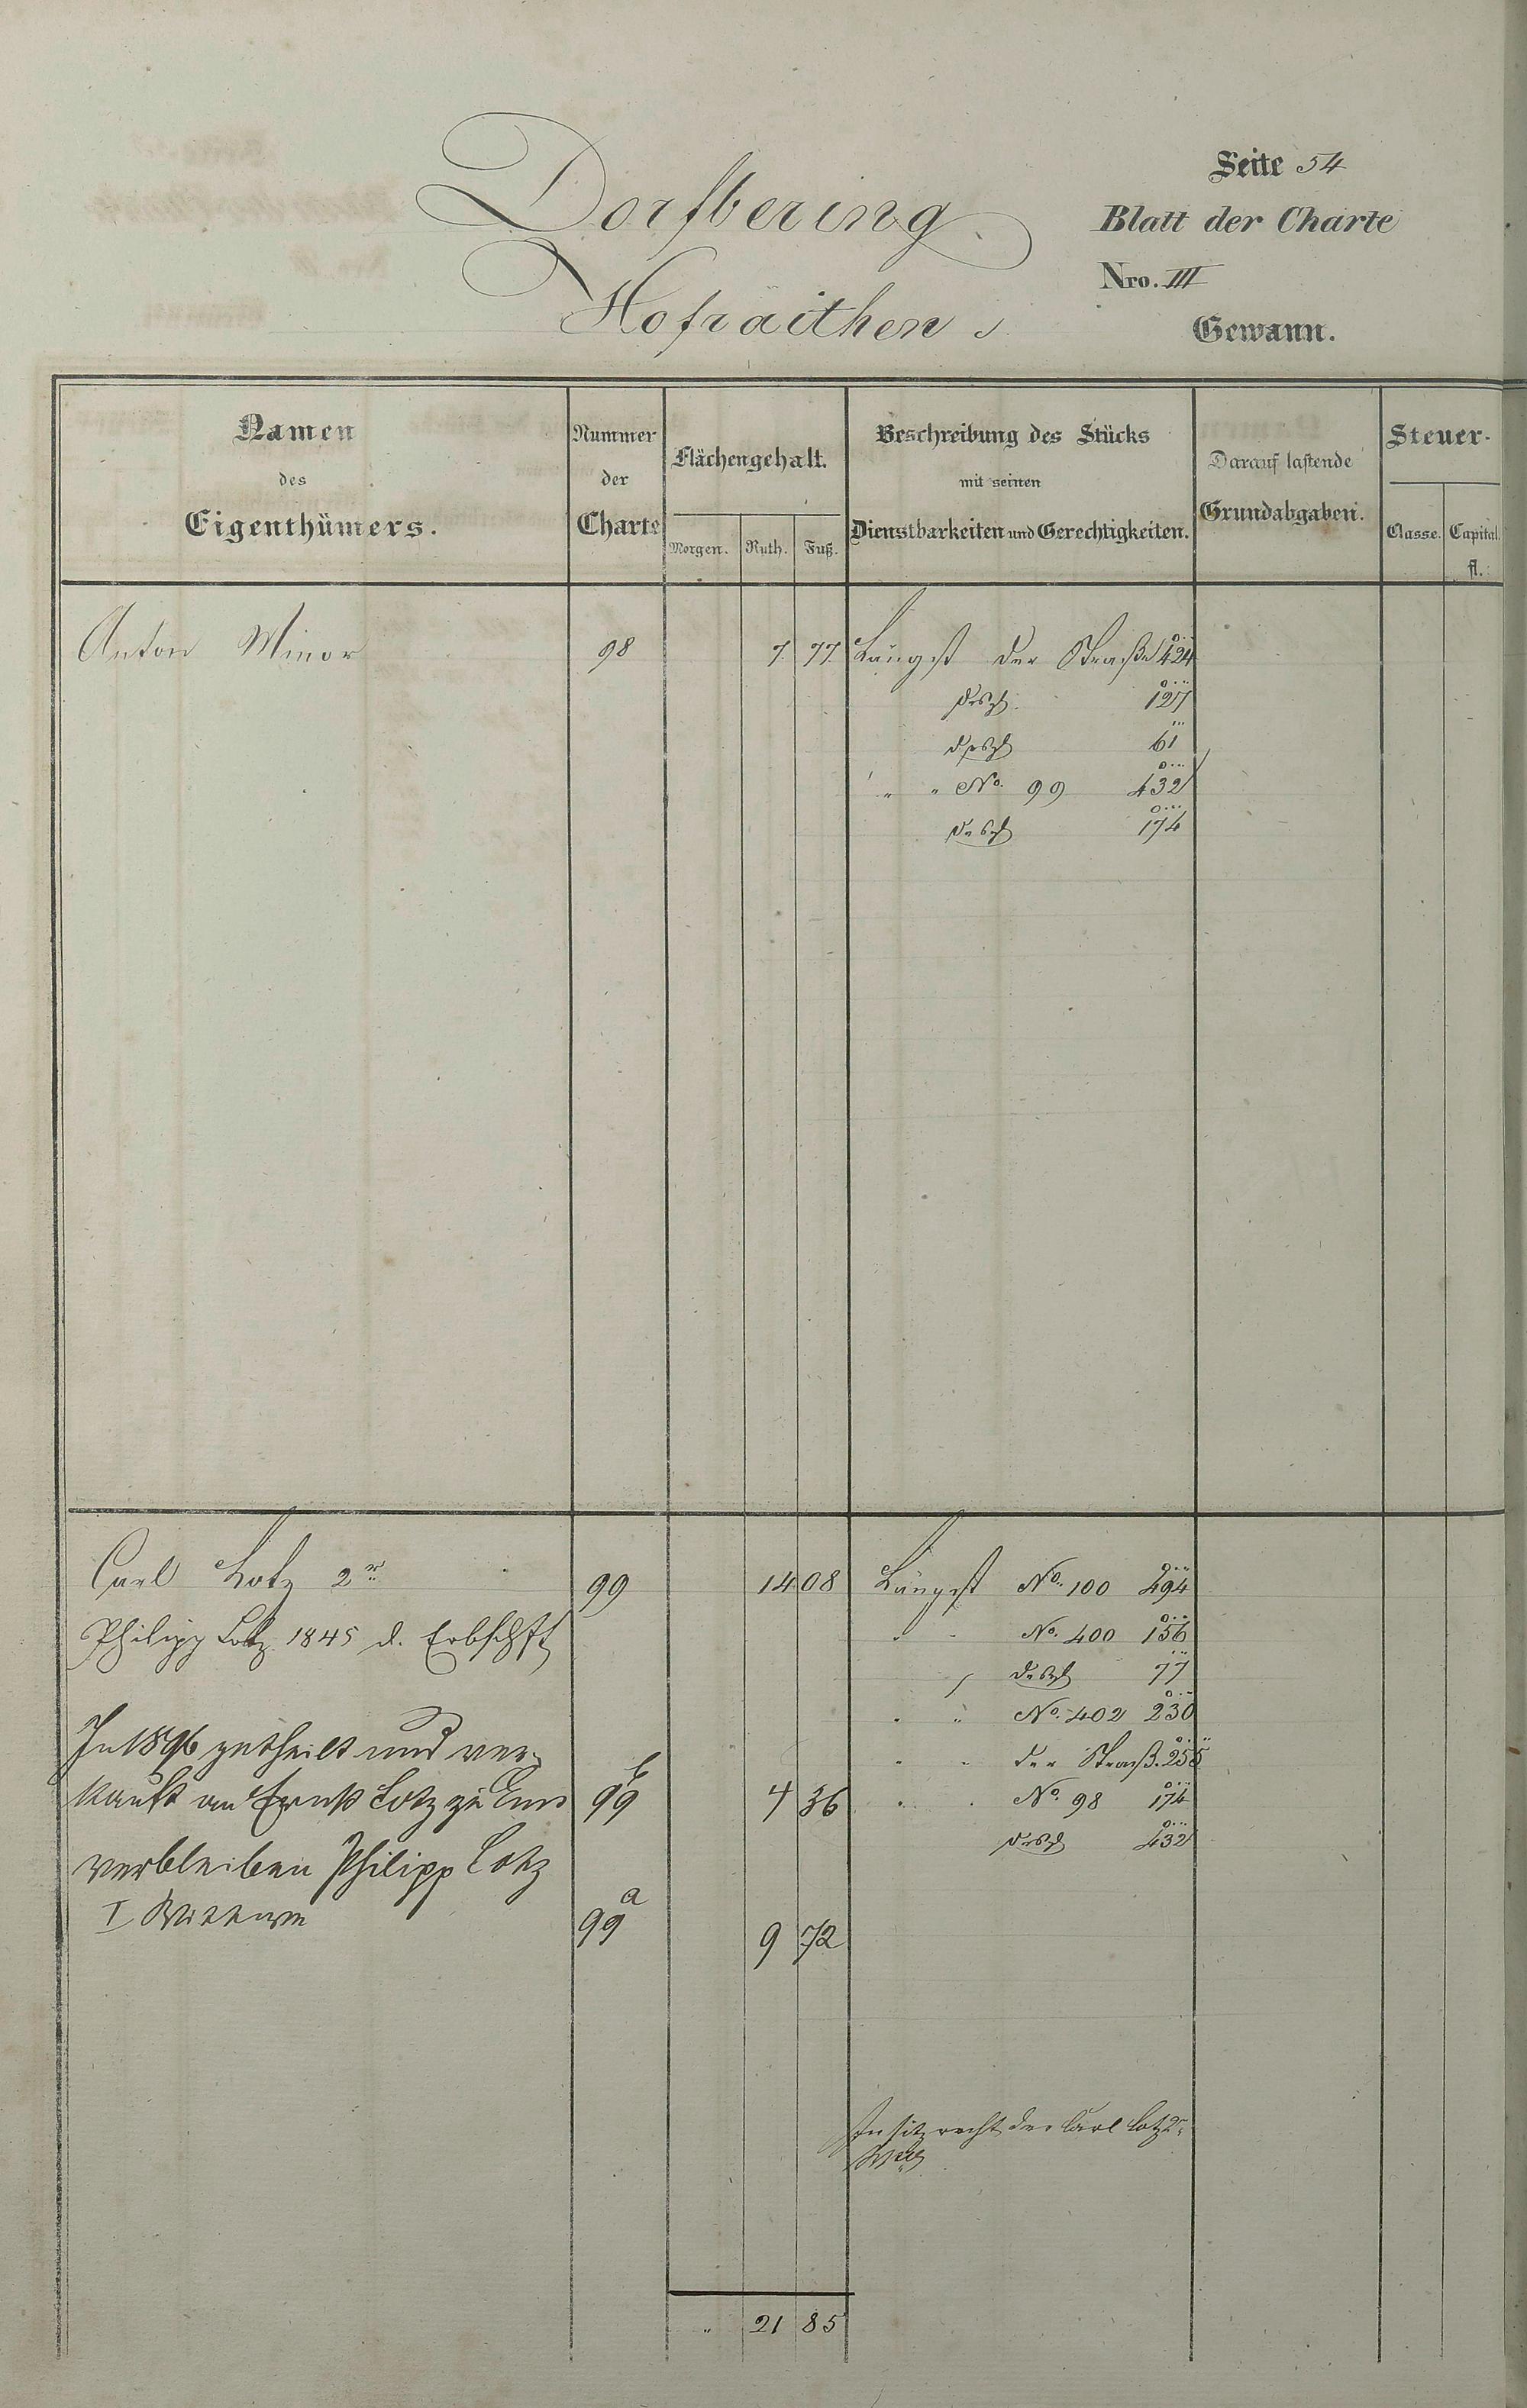 Dorfbering
Hofraithen
Seite 54
Blatt der Charte
Nro. III
Gewann.
Namen
des
Eigenthümers.
Nummer
der
Charte
Flächengehalt.
Morgen. Ruth. Fuß.
Beschreibung des Stücks
mit seinen
Dienstbarkeiten und Gerechtigkeiten.
Darauf lastende
Grundabgaben.
Steuer-
Classe. Capital.
fl.
Anton Minor 98 7 77 Längst der Straße 424
desgl. 127
desgl 61
" " No. 99 432
desgl 174
Carl Lotz 2r 99 14 08 Längst No. 100 494
Philipp Lotz 1845 d. Erbschft " " No. 400 156
desgl 77
" " No. 402 230
In 1896 getheilt und ver-
" " der Straß. 255
kauft an Ernst Lotz zu Ems 99 b 4 36 " " No. 98 174
desgl 432
verbleiben Philipp Lotz
I Wittwe 99 a 9 72
Insitzrecht der Carl Lotz 2r
" 21 85